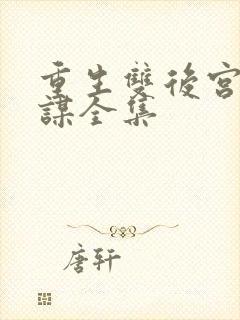 重生雙後宮
謀全集
唐轩